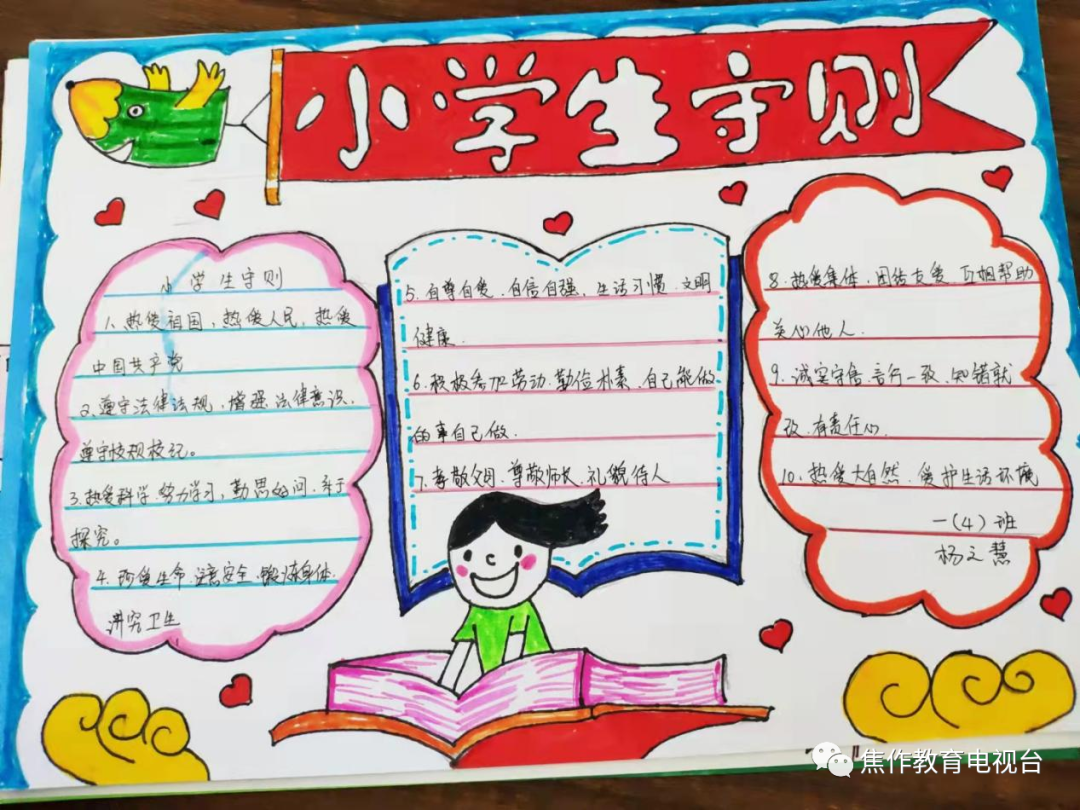 小学生守则
小学生守则
1、热爱祖国，热爱人民，热爱
中国共产党
2、遵守法律法规，增强法律意识，
遵守校规校记。
3、热爱科学、努力学习，勤思好问，乐于
探究。
4、珍爱生命、注意安全、锻炼身体、
讲究卫生
5、自尊自爱、自信自强，生活习惯、文明
健康.
6、积极参加劳动、勤俭朴素、自己能做
的事自己做.
7、孝敬父母、尊敬师长、礼貌待人
8、热爱集体，团结友爱、互相帮助
关心他人.
9、诚实守信、言行一致、知错就
改、有责任心.
10、热爱大自然、爱护生活环境
一（4）班
杨之慧
焦作教育电视台